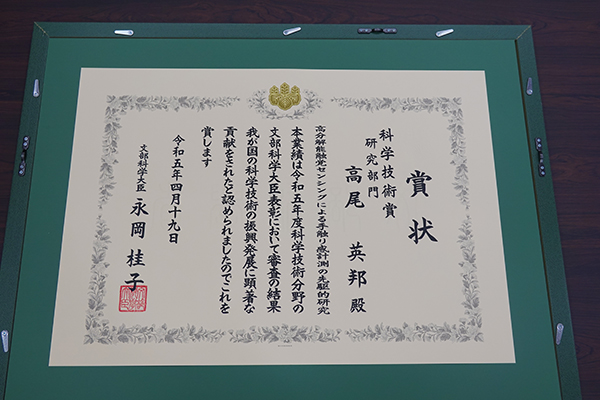 賞状
科学技術賞
研究部門
高尾 英邦 殿
高分解能触覚センシングによる手触り感計測の先駆的研究
本業績は令和五年度科学技術分野の
文部科学大臣表彰において審査の結果
我が国の科学技術の振興発展に顕著な
貢献をされたと認められましたのでこれを
賞します
令和五年四月十九日
文部科学大臣 永岡 桂子